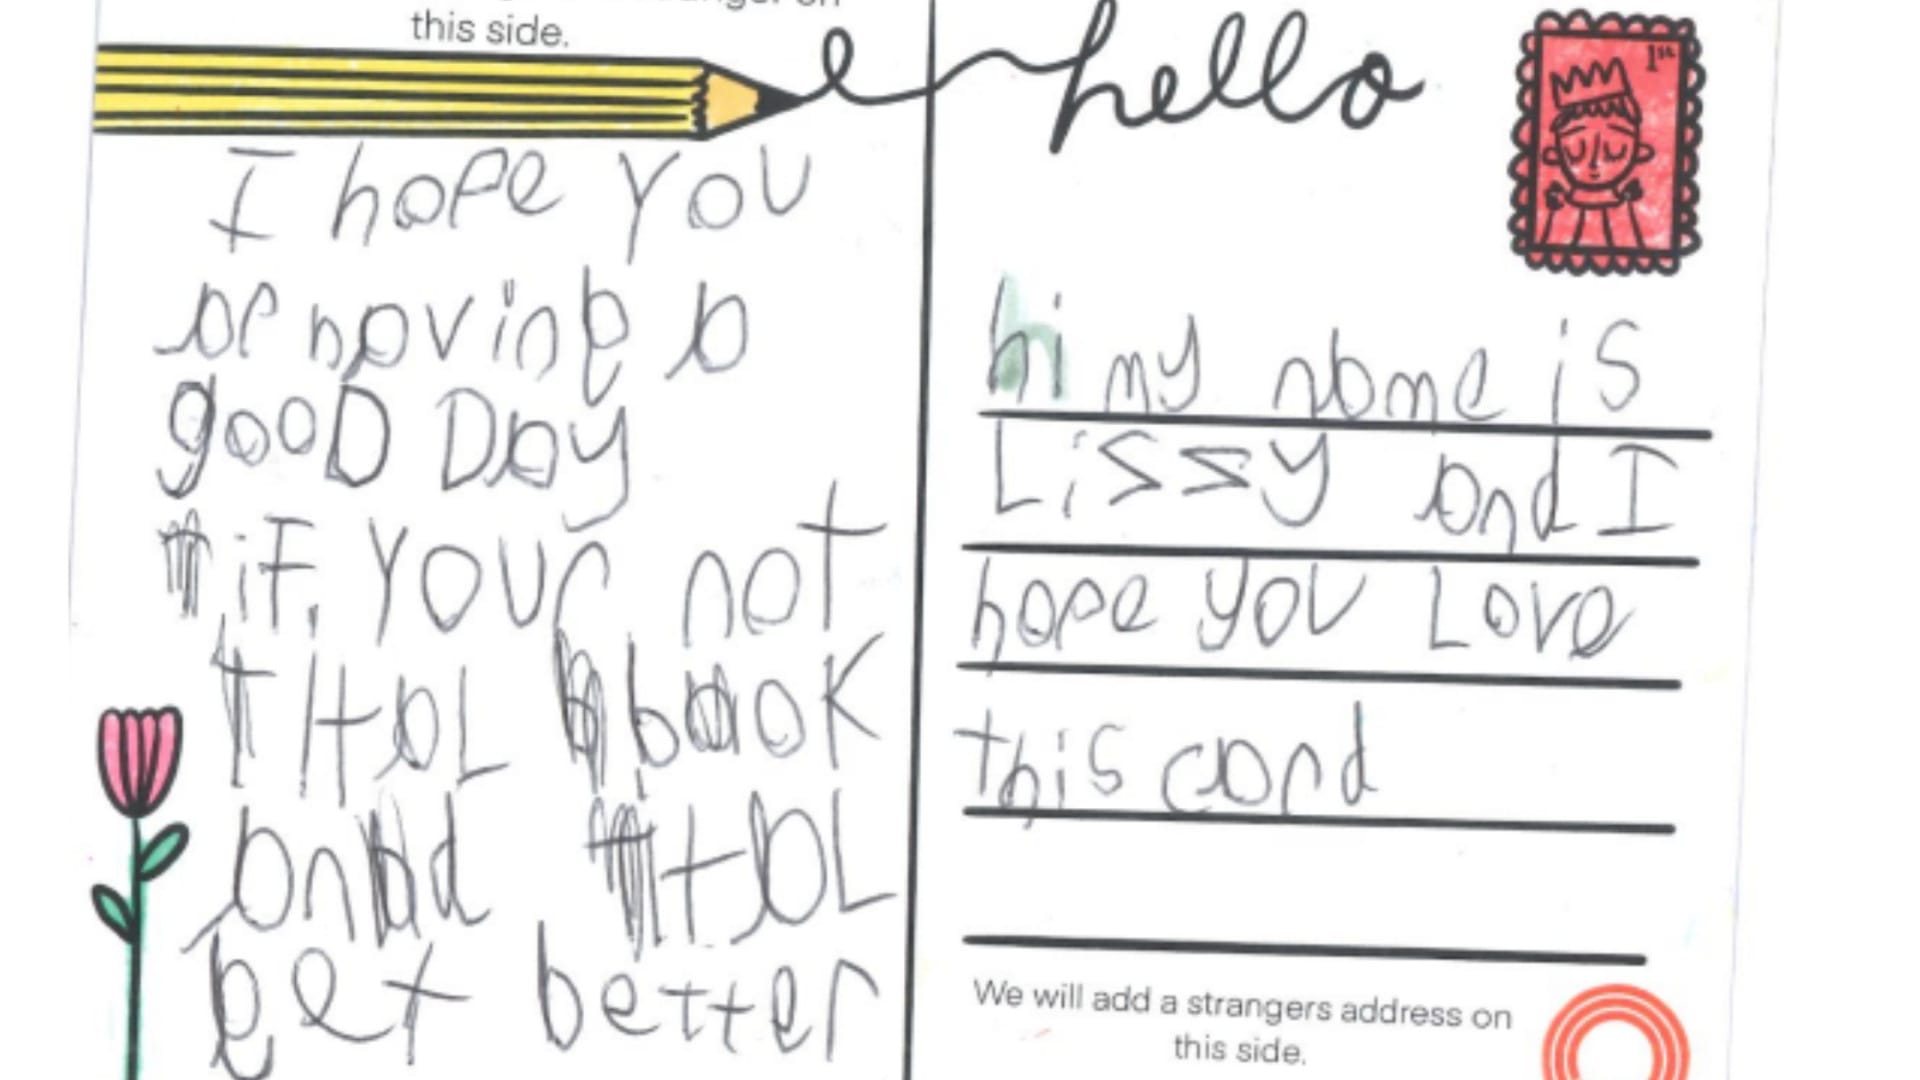 this side.
I hope you
or hoving a
gooD Day
iF your not
Hal book
and Hal
get better
hello
1st
hi my name is
Lissy and I
hope you Love
this card
We will add a strangers address on
this side.